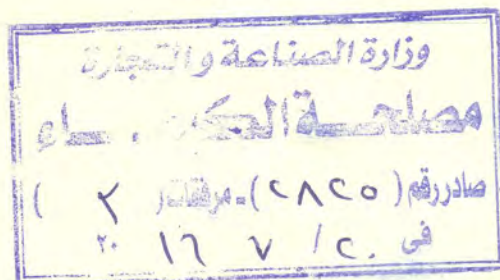 وزارة الصناعة والتجارة
مصلحة
صادر رقم (٢٨٢٥) ـ مرفقات ( ٢ )
فى ٢٠ / ٧ ٢٠١٦